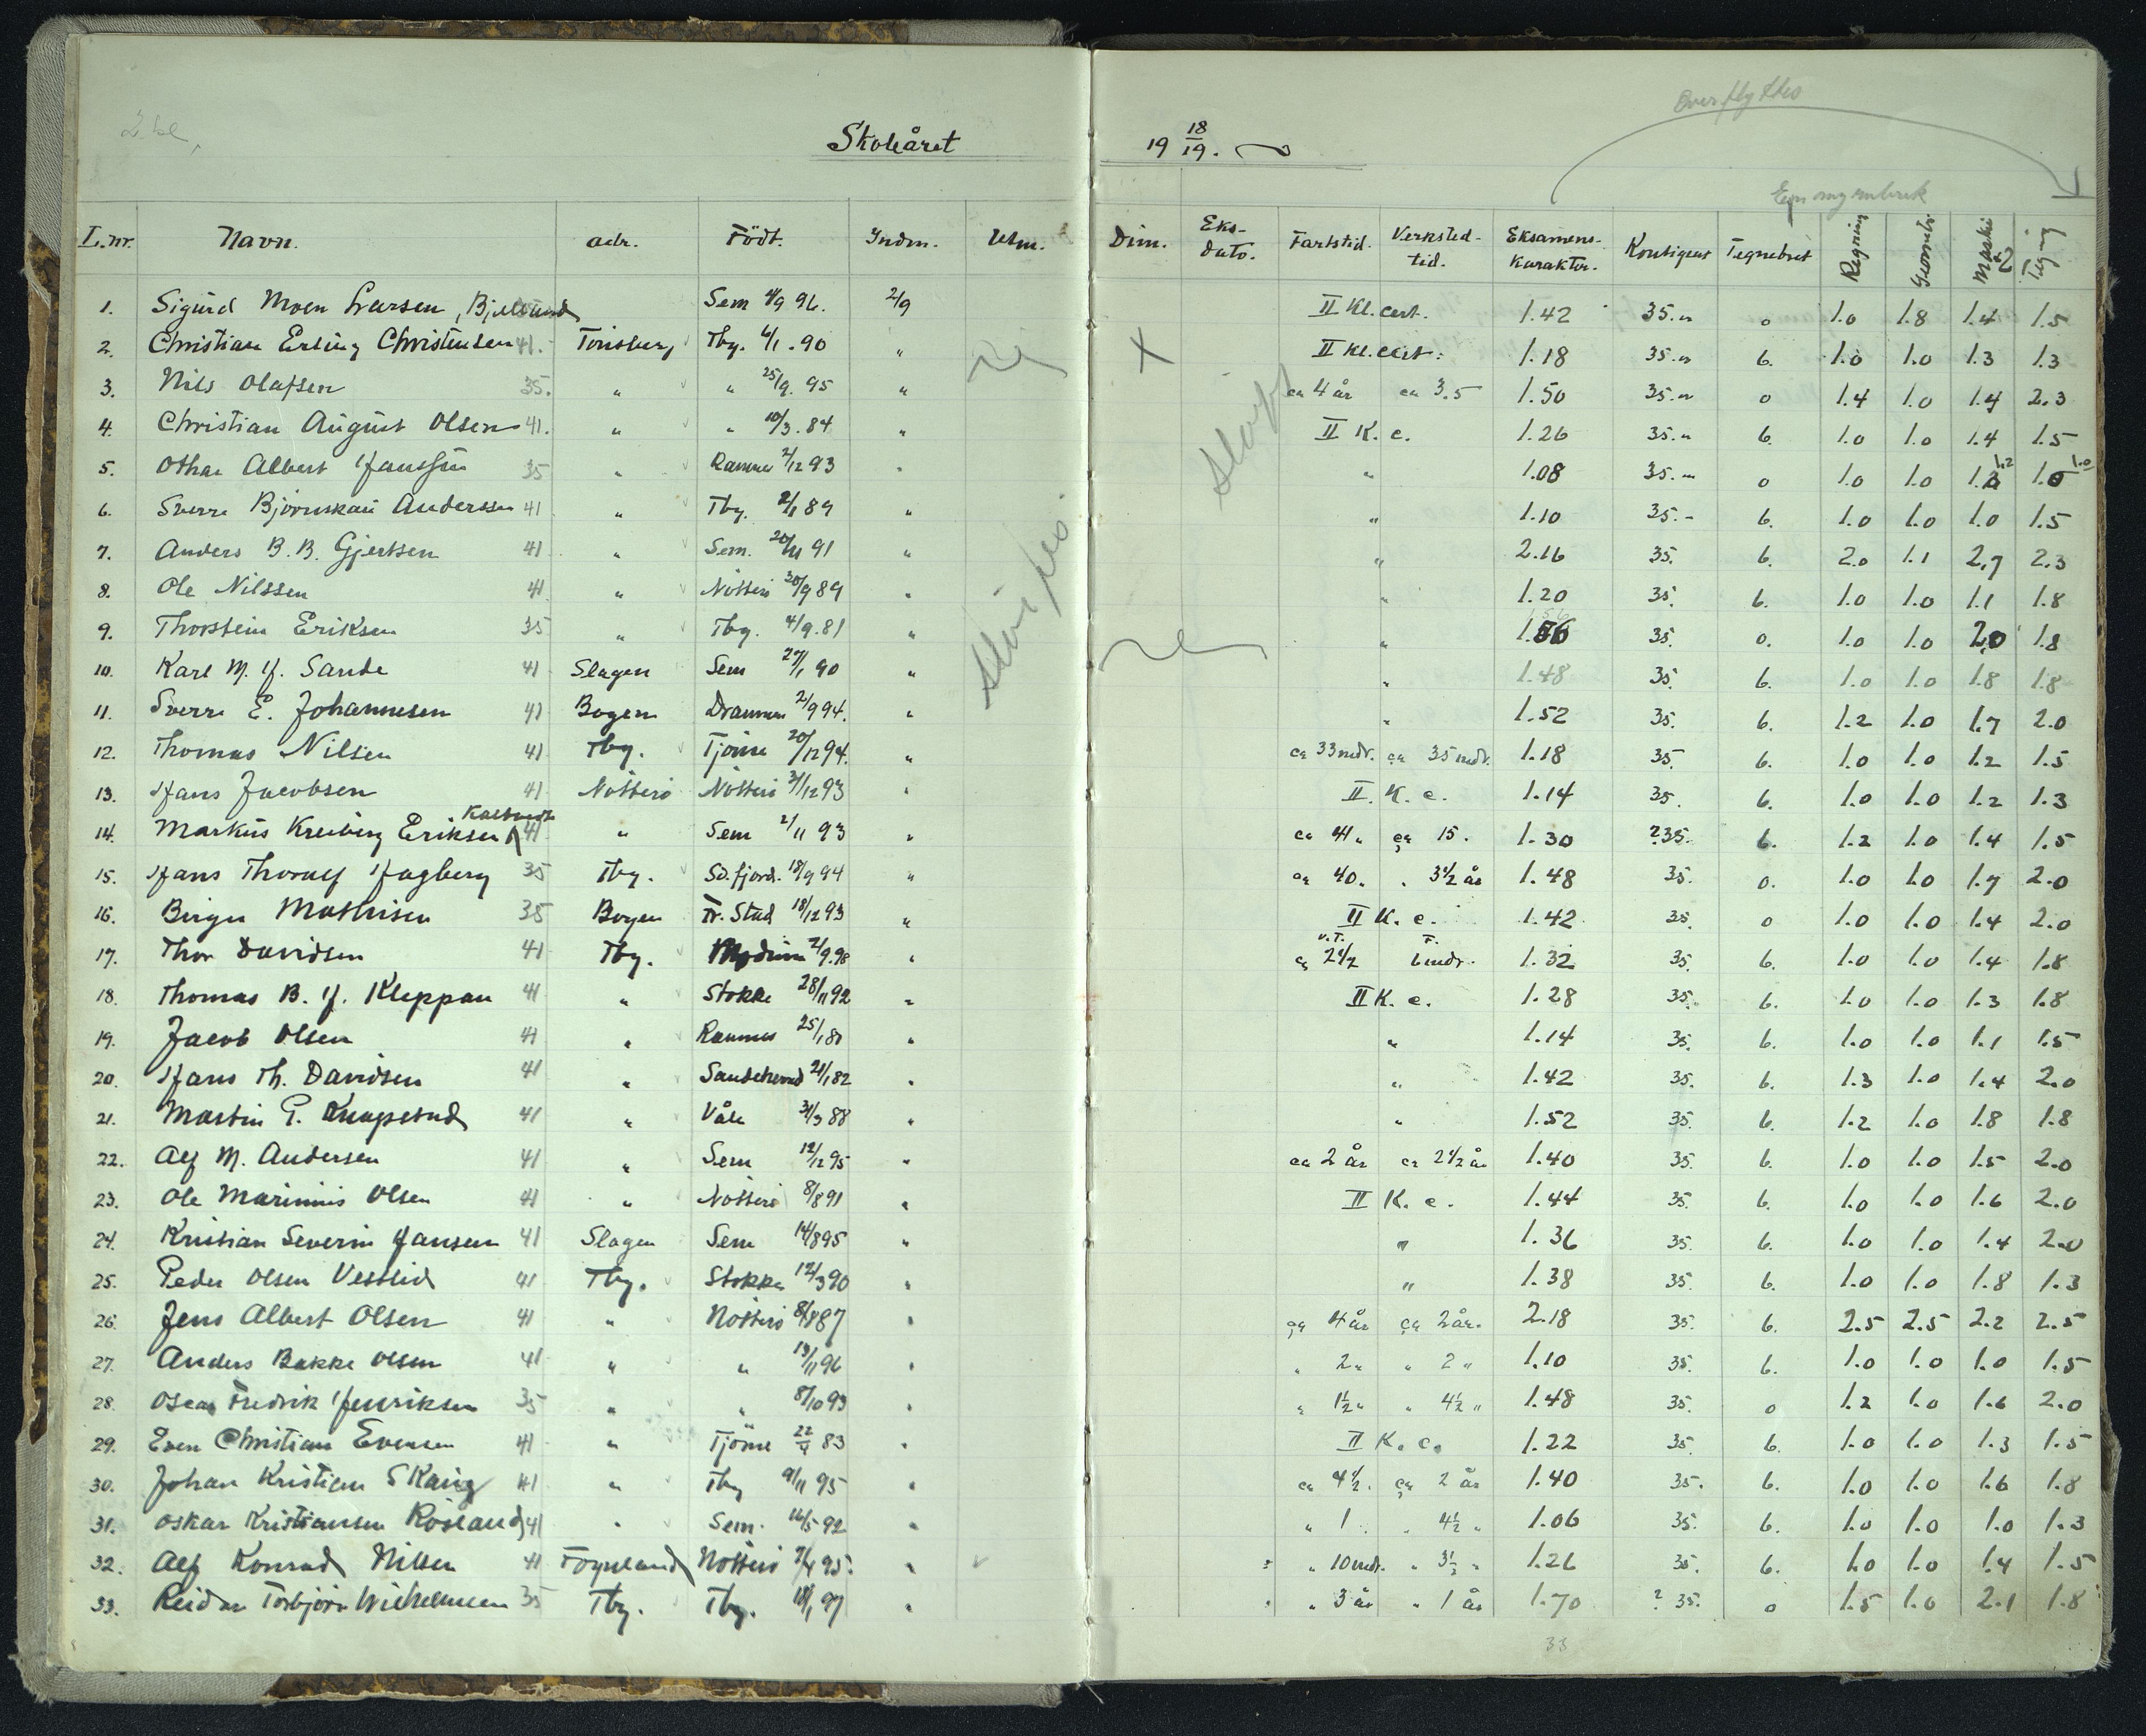 2 kl.
Skoleåret 19 18/19.
Overflyttes
Egen ny rubrik
L.nr. Navn. adr. Födt. Indm. Utm. Dim. Eks-dato. Fartstid. Verksted-tid. Eksamens-karakter. Kontigent Tegnebret Regning Geometri Maskin 2 Tegning
1. Sigurd Moen Larsen, Sem 4/9 96. 2/9 II Kl. cert. 1.42 35.- 0 1.0 1.8 1.4 1.5
2. Christian Erling Christensen 41. Tönsberg Tbg. 6/1.90 " X II Kl. cert. 1.18 35.- 6. 1.0 1.0 1.3 1.3
3. Nils Olafsen 35. " " 25/9.95 " ca 4 år ca 3.5 1.50 35.- 0 1.4 1.0 1.4 2.3
4. Christian August Olsen 41. " " 10/3.84 " II K. c. 1.26 35.- 6. 1.0 1.0 1.4 1.5
5. Othar Albert Janssen 35 " Ramnes 2/12 93 " " 1.08 35.- 0 1.0 1.0 1.2 1.0
6. Sverre Bjönnskau Anderssen 41 " Tbg. 2/1 89 " " 1.10 35.- 6. 1.0 1.0 1.0 1.5
7. Anders B. B. Gjertsen 41 " Sem. 20/11 91 " " 2.16 35. 6. 2.0 1.1 2.7 2.3
8. Ole Nilssen 41 " Nötterö 30/9 89 " " 1.20 35. 6. 1.0 1.0 1.1 1.8
9. Thorstein Eriksen 35 " Tbg. 4/9.81 " " 1.56 35. 0. 1.0 1.0 2.0 1.8
10. Karl M. H. Sande 41 Slagen Sem 27/1 90 " " 1.48 35. 6. 1.0 1.0 1.8 1.8
11. Sverre E. Johannesen 41 Bogen Drammen 2/9 94. " " 1.52 35. 6. 1.2 1.0 1.7 2.0
12. Thomas Nilsen 41 Tbg. Tjöme 20/12 94. " ca 33 mdr. ca 35 mdr. 1.18 35. 6. 1.0 1.0 1.2 1.5
13. Hans Jacobsen 41 Nötterö Nötterö 31/12 93 " II. K. c. 1.14 35. 6. 1.0 1.0 1.2 1.3
14. Markus Kreiberg Eriksen 41 " Sem 2/11 93 " ca 41 " ca 15. 1.30 ?35. 6. 1.2 1.0 1.4 1.5
15. Hans Thoralf Hagberg 35 Tbg. Sd.fjord. 18/9 94 " ca 40 " " 3 1/2 år 1.48 35. 0. 1.0 1.0 1.7 2.0
16. Birger Mathisen 35 Bogen Fr. Stad 18/12 93 " II K. c. 1.42 35 0 1.0 1.0 1.4 2.0
17. Thor Davidsen 41 Tbg. 2/9.98 " v.T. ca 2 1/2 F. 6 mdr. 1.32 35. 6. 1.0 1.0 1.4 1.8
18. Thomas B. H. Kleppan 41 " Stokke 28/11 92 " II K. c. 1.28 35. 6. 1.0 1.0 1.3 1.8
19. Jacob Olsen 41 " Ramnes 25/1 80 " " 1.14 35. 6. 1.0 1.0 1.1 1.5
20. Hans Th. Davidsen 41 " Sandeherred 21/1 82 " " 1.42 35. 6. 1.3 1.0 1.4 2.0
21. Martin G. Knapstad 41 " Våle 31/3 88 " " 1.52 35. 6. 1.2 1.0 1.8 1.8
22. Alf M. Andersen 41 " Sem 12/12 95 " ca 2 år ca 2 1/2 år 1.40 35. 6. 1.0 1.0 1.5 2.0
23. Ole Marinius Olsen 41 " Nötterö 8/8 91 " II K. c. 1.44 35. 6. 1.0 1.0 1.6 2.0
24. Kristian Severin Hansen 41 Slagen Sem 14/8 95 " " 1.36 35. 6. 1.0 1.0 1.4 2.0
25. Peder Olsen Vestlid 41 Tbg. Stokke 12/3 90 " " 1.38 35. 6. 1.0 1.0 1.8 1.3
26. Jens Albert Olsen 41 " Nötterö 8/8 87 " ca 4 år ca 2 år. 2.18 35. 6. 2.5 2.5 2.2 2.5
27. Anders Bakke Olsen 41 " " 13/11 96 " " 2 " " 2 " 1.10 35. 6. 1.0 1.0 1.0 1.5
28. Oscar Fredrik Henriksen 35 " " 8/10 93 " " 1 1/2 " " 4 1/2 " 1.48 35. 0 1.2 1.0 1.6 2.0
29. Even Christian Evensen 41 " Tjöme 83 " II K. c. 1.22 35. 6. 1.0 1.0 1.3 1.5
30. Johan Kristian Skaug 41 " Tbg 9/11 95 " ca 4 1/2. ca 2 år 1.40 35. 6. 1.0 1.0 1.6 1.8
31. Oskar Kristiansen Rösland 41 " Sem. 16/5 92 " " 1 " " 4 1/2 " 1.06 35. 6. 1.0 1.0 1.0 1.3
32. Alf Konrad Nilsen 41 Föynland Nötterö 7/4 95. " " 10 mdr. " 3 1/2 " 1.26 35. 6. 1.0 1.0 1.4 1.5
33. Reidar Torbjörn Wilhelmsen 35 Tbg. Tbg. 18/1 97 " " 3 år " 1 år 1.70 ? 35. 0 1.5 1.0 2.1 1.8
33